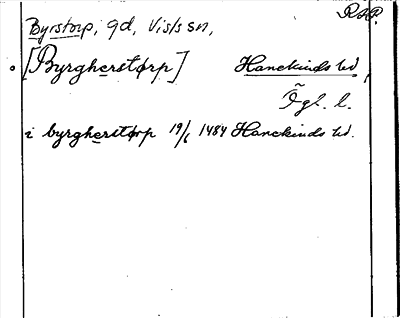 RAP.
Byrstorp, gd, Visfs sn,
[Byrgherstørp] Hanekinds hd,
Ögl. l.
i byrgherstørp 19/6 1484 Hanekinds hd.